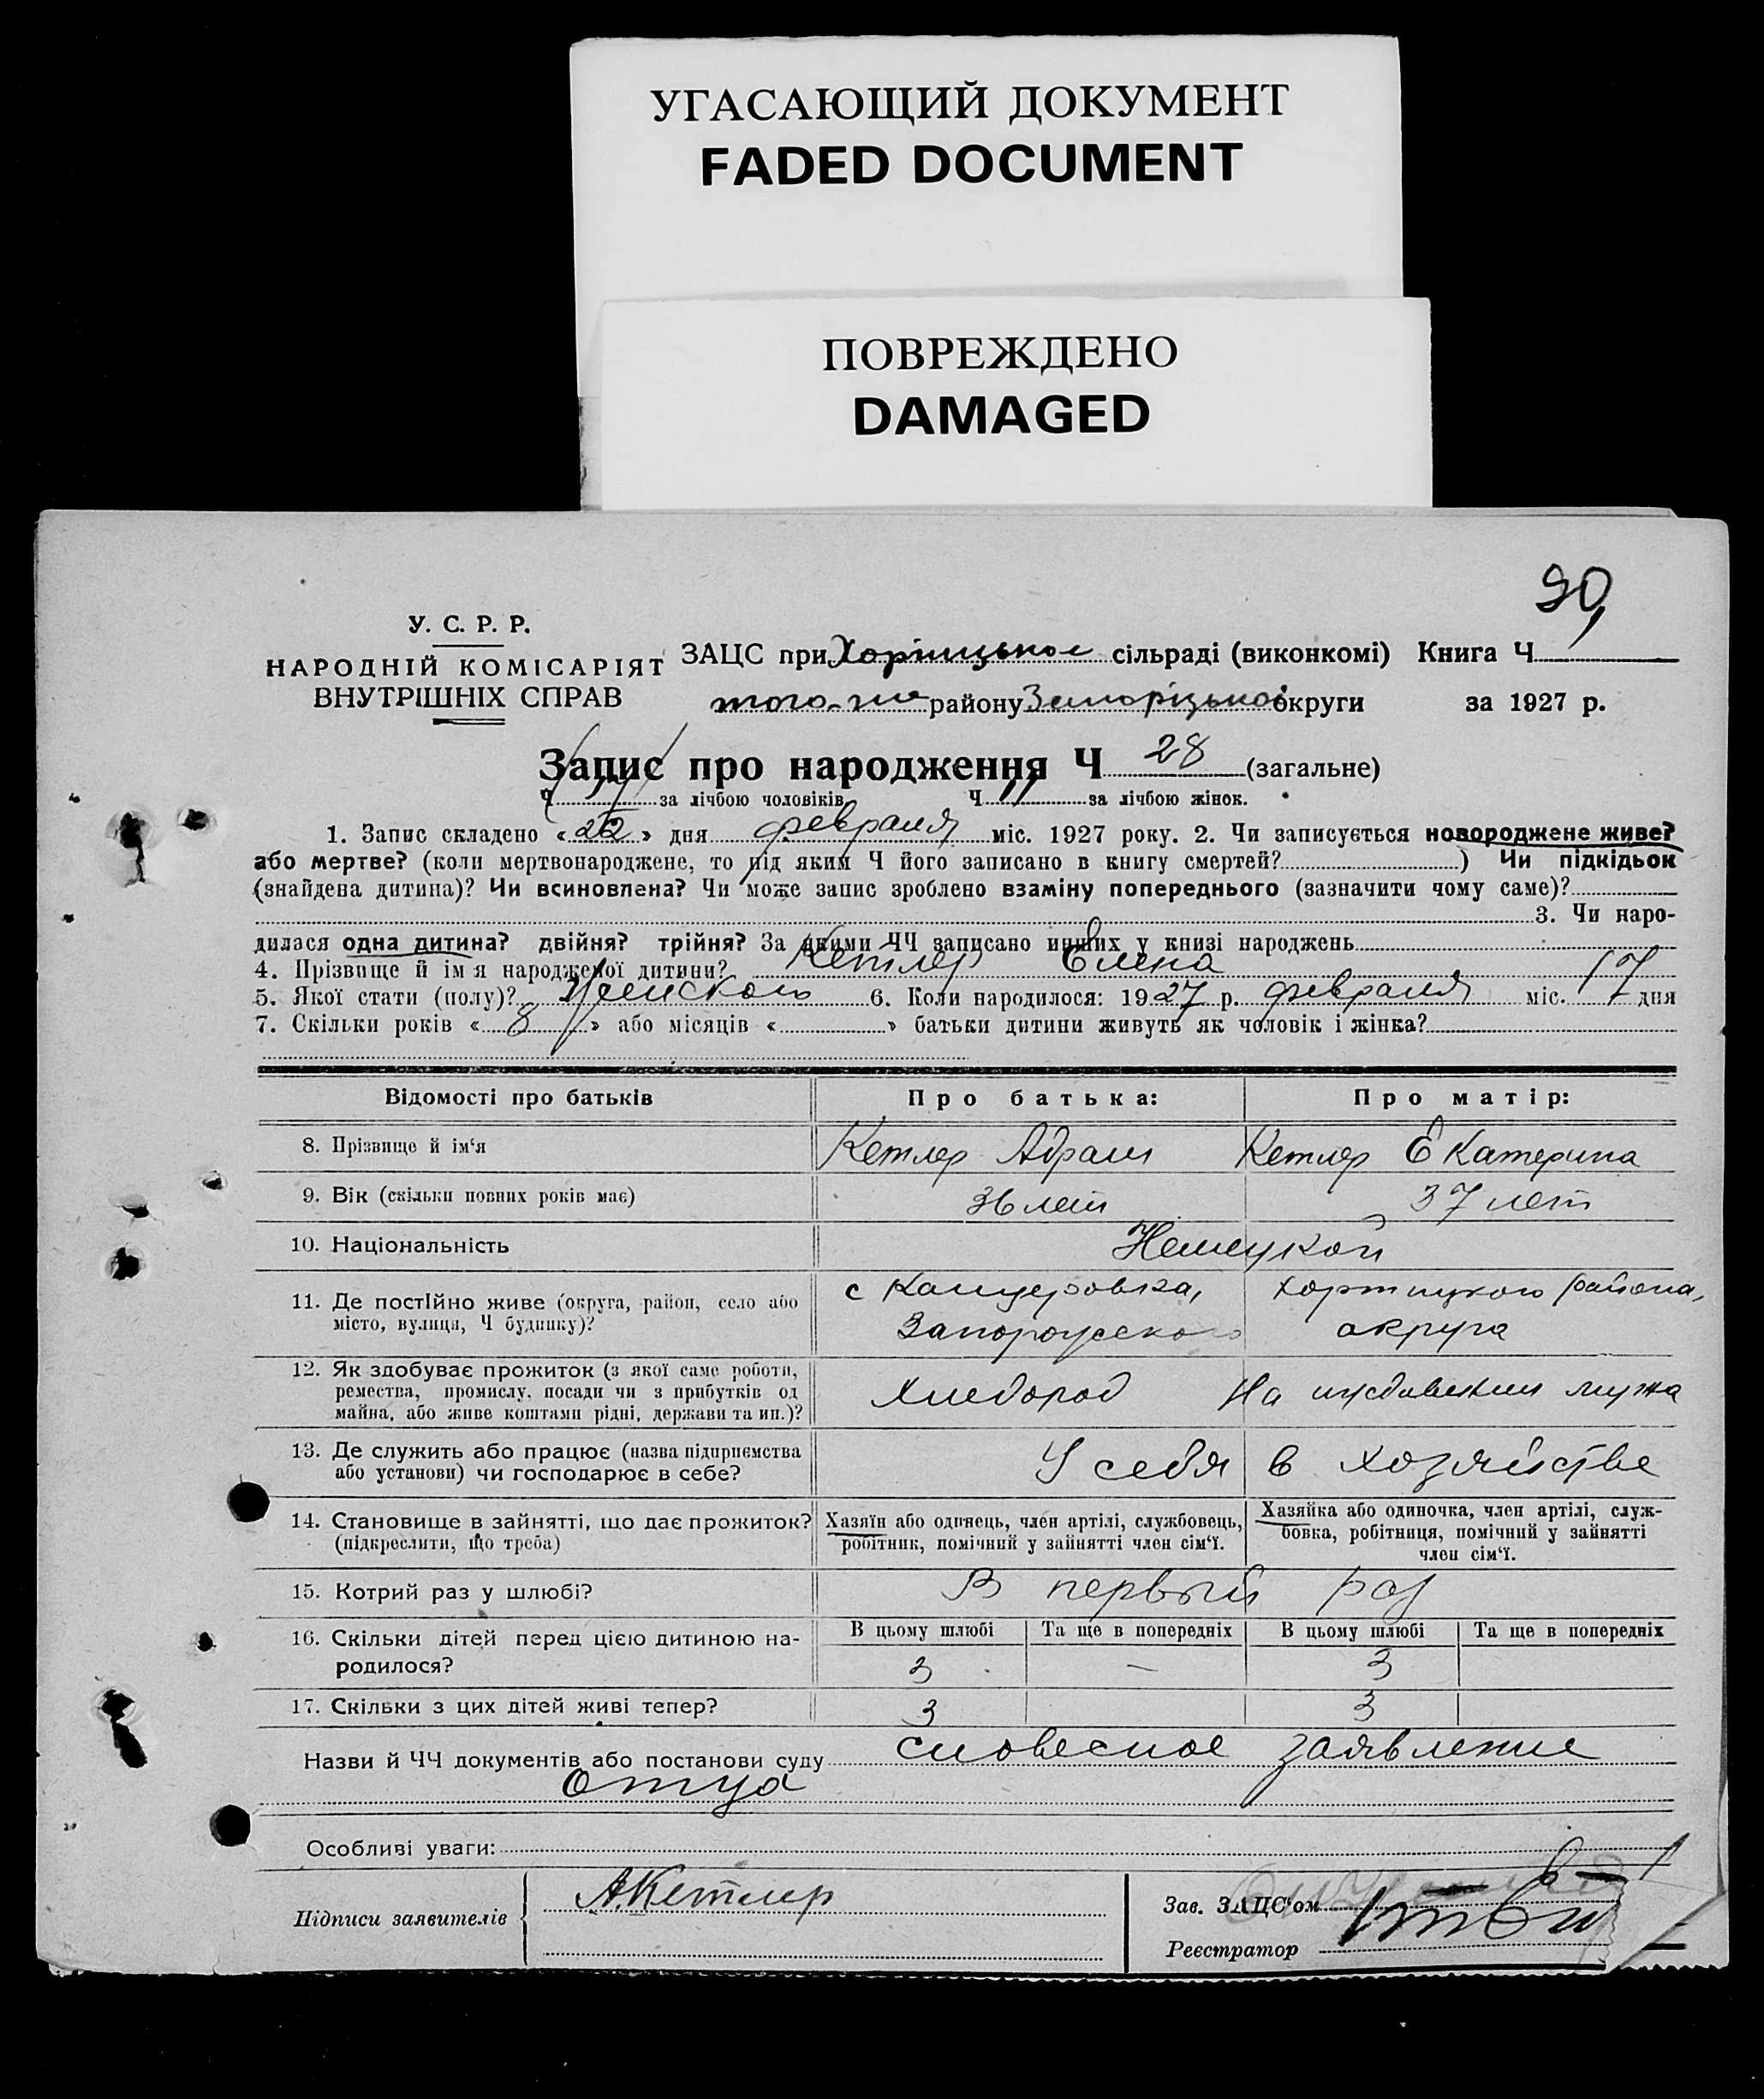 УГАСАЮЩИЙ ДОКУМЕНТ
FADED DOCUMENT
ПОВРЕЖДЕНО
DAMAGED
90
У. С. Р. Р.
НАРОДНІЙ КОМІСАРІЯТ
ВНУТРІШНІХ СПРАВ
ЗАЦС при Хортицькое сільраді (виконкомі) Книга Ч
того-же району Запоріцькой округи за 1927 р.
Запис про народження Ч 28 (загальне)
Ч за лічбою чоловіків Ч 11 за лічбою жінок.
1. Запис складено «22» дня февраля міс. 1927 року. 2. Чи записується новороджене живе?
або мертве? (коли мертвонароджене, то під яким Ч його записано в книгу смертей? ) Чи підкідьок
(знайдена дитина)? Чи всиновлена? Чи може запис зроблено взаміну попереднього (зазначити чому саме)?
3. Чи наро-
дилася одна дитина? двійня? трійня? За якими ЧЧ записано инших у книзі народжень
4. Прізвище й імя народженої дитини? Кетлер Елена
5. Якої стати (полу)? Женского 6. Коли народилося: 1927 р. февраля міс. 17 дня
7. Скільки років «8» або місяців « » батьки дитини живуть як чоловік і жінка?
Відомості про батьків Про батька: Про матір:
8. Прізвище й ім‘я Кетлер Абрам Кетлер Екатерина
9. Вік (скільки повних років має) 36 лет 37 лет
10. Національність Немецкой
11. Де постІйно живе (округа, район, село або с Канцеровка, Хортицкого района,
місто, вулиця, Ч будинку)? Запорожского округа
12. Як здобуває прожиток (з якої саме роботи,
ремества, промислу, посади чи з прибутків од Хлебород На иждивении мужа
майна, або живе коштами рідні, держави та ин.)?
13. Де служить або працює (назва підприємства
або установи) чи господарює в себе? У себя в хозяйстве
14. Становище в зайнятті, що дає прожиток? Хазяїн або одинець, член артілі, службовець, Хазяйка або одиночка, член артілі, служ-
(підкреслити, що треба) робітник, помічний у зайнятті член сім‘ї. бовка, робітниця, помічний у зайнятті
член сім‘ї.
15. Котрий раз у шлюбі? В первый раз
16. Скільки дітей перед цією дитиною на- В цьому шлюбі Та ще в попередніх В цьому шлюбі Та ще в попередніх
родилося? 3 — 3
17. Скільки з цих дітей живі тепер? 3 3
Назви й ЧЧ документів або постанови суду словесное заявление
отца
Особливі уваги:
Підписи заявителів А.Кетлер Зав. ЗАЦС‘ом
Реєстратор